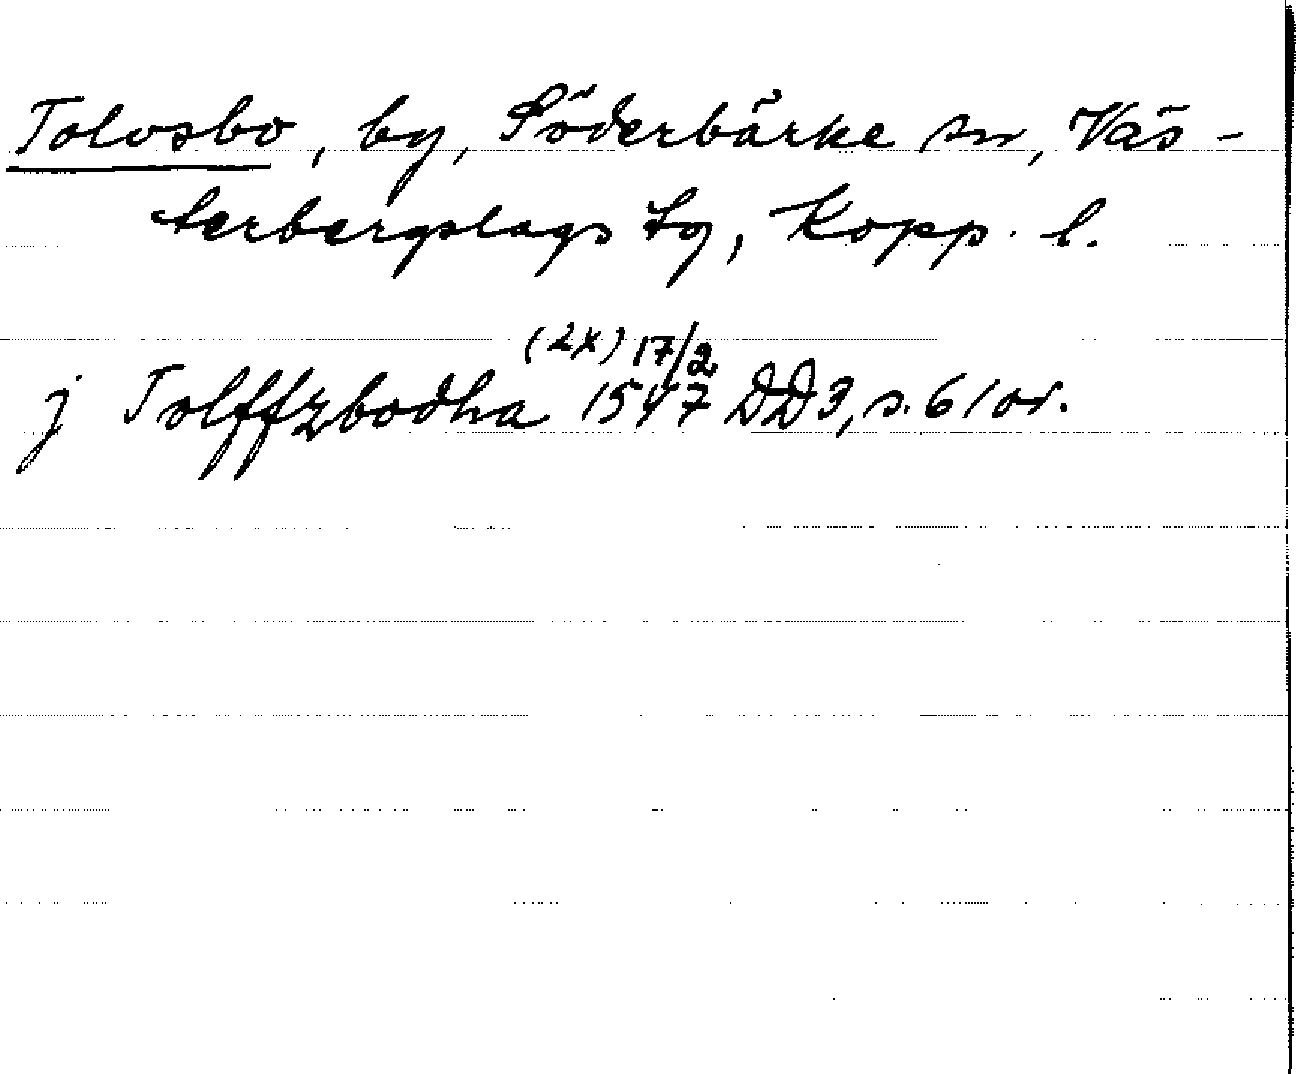 Tolvsbo, by, Söderbärke sn, Väs-
terbergslags tg, Kopp. l.
(2x) 17/2
j Tolffzbodha 1547 DD3, s. 61 or.